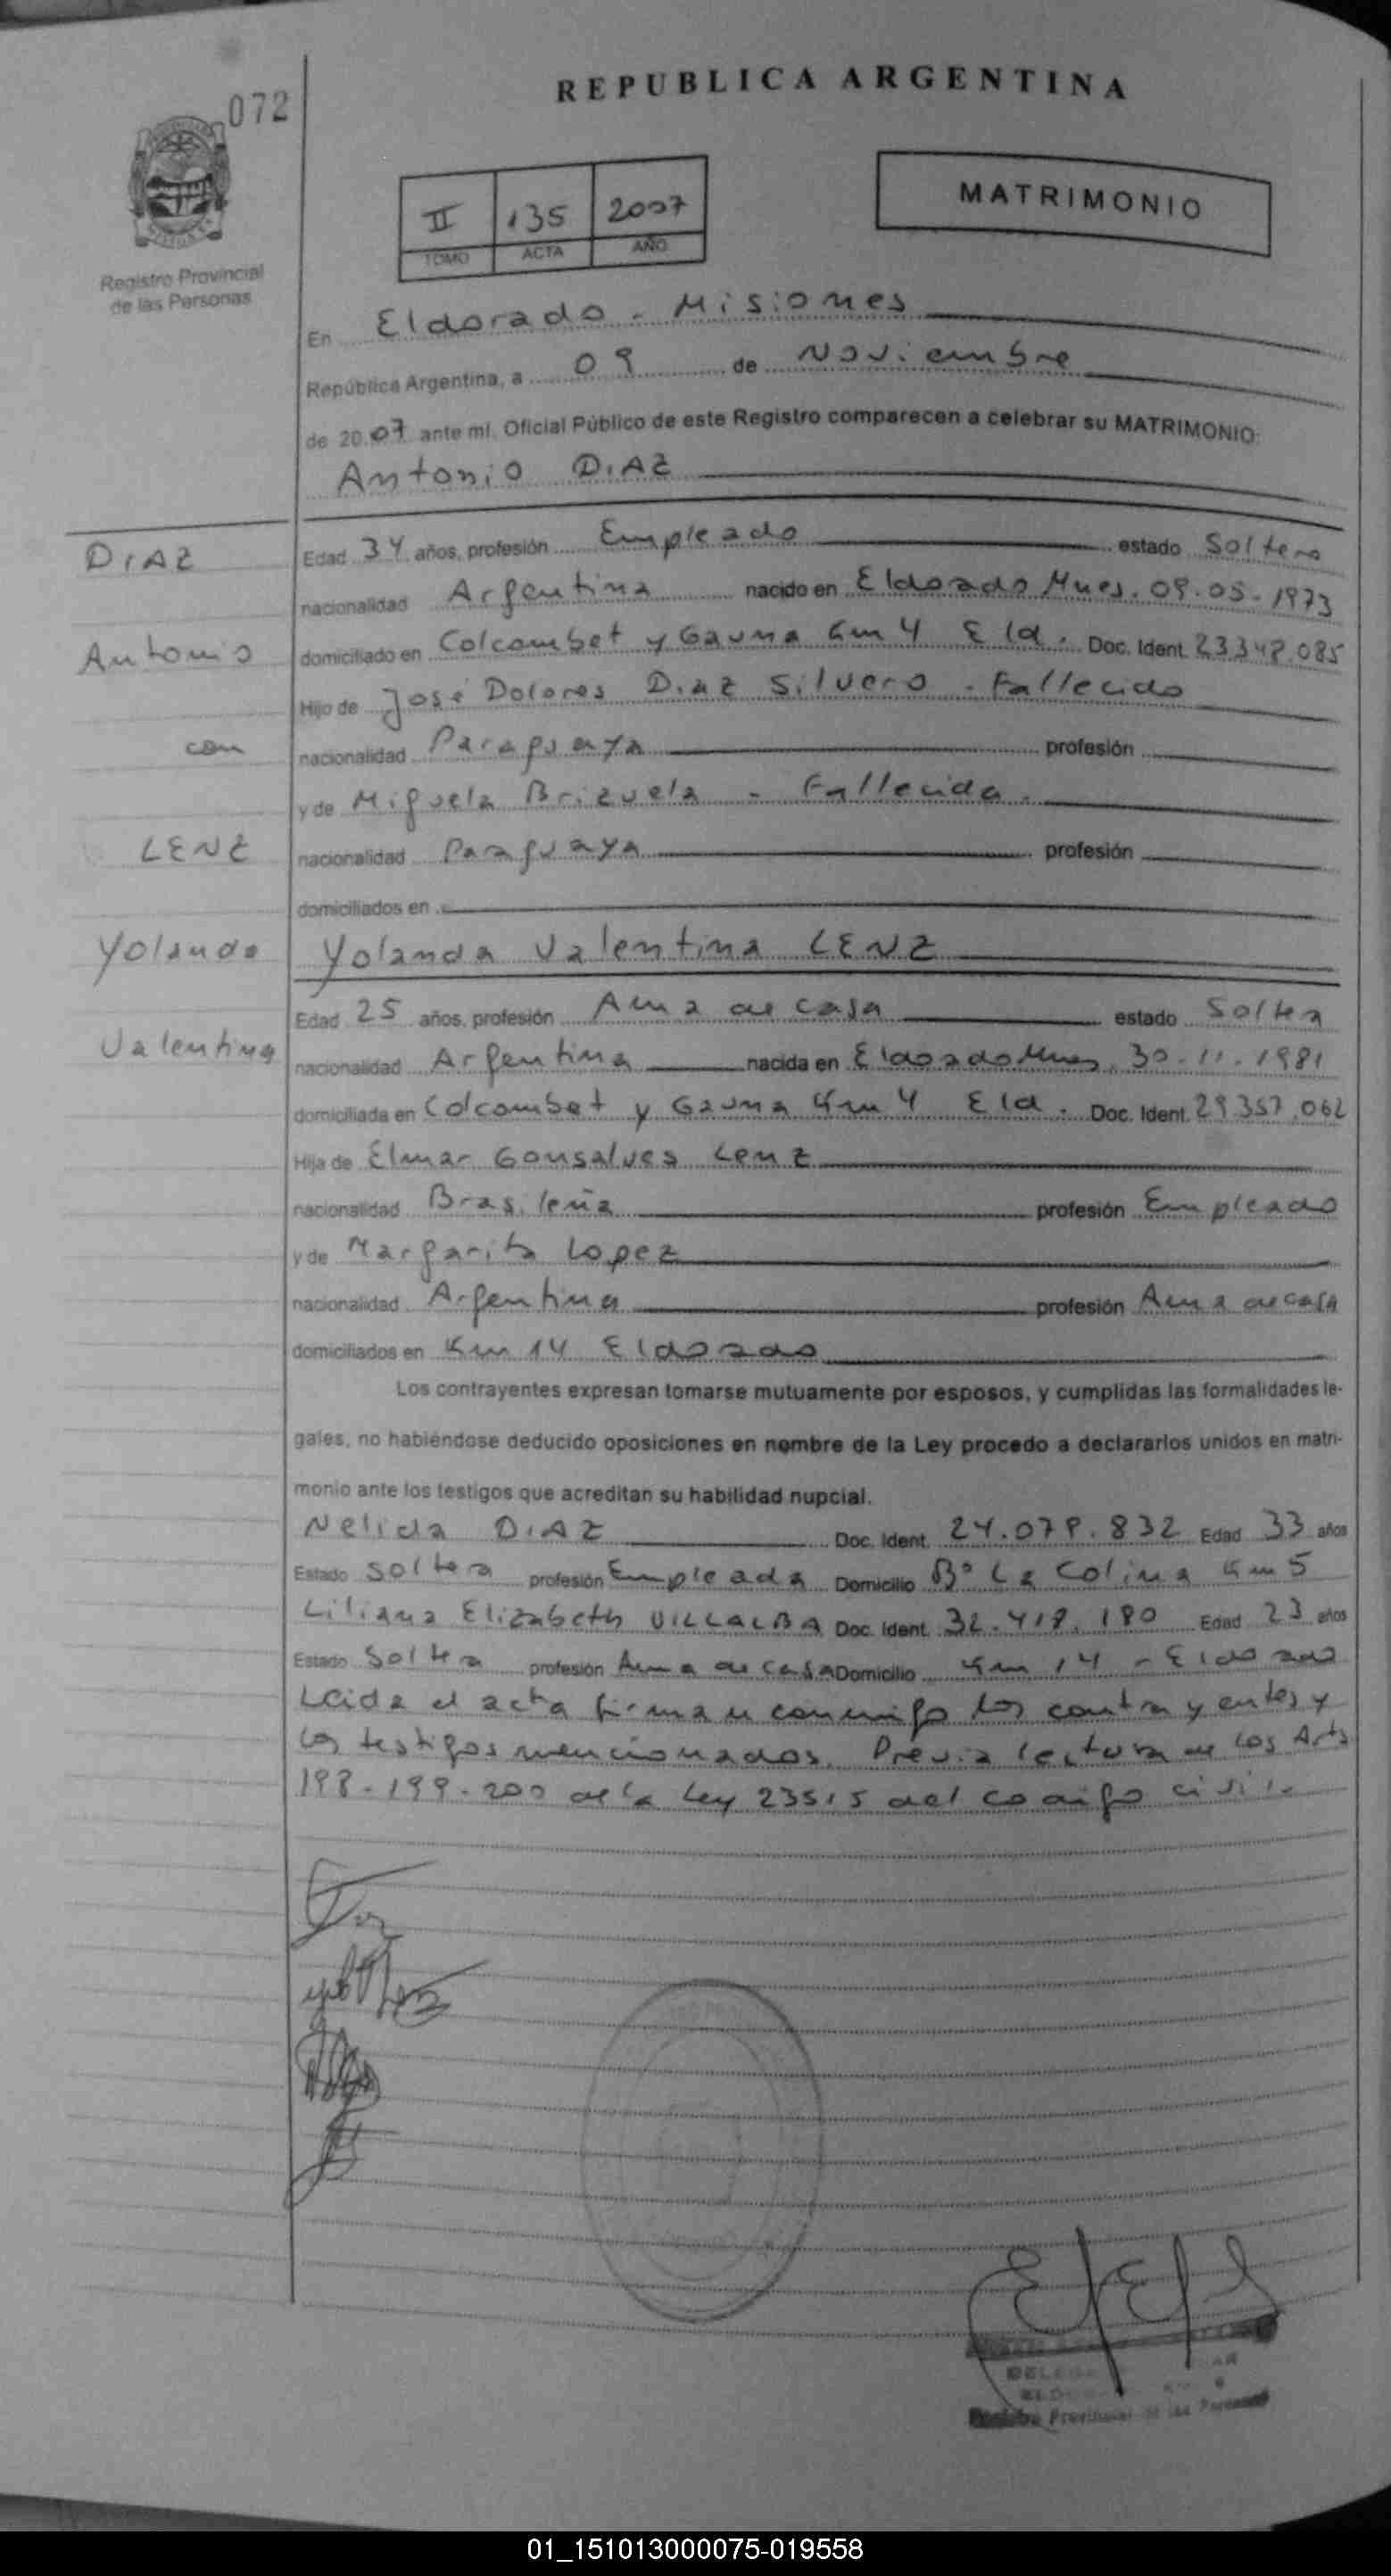 REPUBLICA ARGENTINA
072
MATRIMONIO
II 135 2007
TOMO ACTA AÑO
Registro Provincial
de las Personas
En Eldorado - Misiones
República Argentina, a 09 de Noviembre
de 2007 ante mí, Oficial Público de este Registro comparecen a celebrar su MATRIMONIO:
Antonio DIAZ
DIAZ
Edad 34 años, profesión Empleado estado Soltero
nacionalidad Argentina nacido en Eldorado Mnes. 09.05.1973
Antonio
domiciliado en Colcombet y Gauna Km 4 Eld. Doc. Ident. 23.348.085
Hijo de José Dolores Diaz Silvero - Fallecido
con
nacionalidad Paraguaya profesión
y de Miguela Brizuela - Fallecida.
LENZ
nacionalidad Paraguaya profesión
domiciliados en
Yolanda
Yolanda Valentina LENZ
Edad 25 años, profesión Ama de casa estado Soltera
Valentina
nacionalidad Argentina nacida en Eldorado Mnes, 30-11-1981
domiciliada en Colcombet y Gauna Km 4 Eld. Doc. Ident. 29.357.062
Hija de Elmar Gonsalves Lenz
nacionalidad Brasileña profesión Empleado
y de Margarita Lopez
nacionalidad Argentina profesión Ama de casa
domiciliados en Km 14 Eldorado
Los contrayentes expresan tomarse mutuamente por esposos, y cumplidas las formalidades le-
gales, no habiéndose deducido oposiciones en nombre de la Ley procedo a declararlos unidos en matri-
monio ante los testigos que acreditan su habilidad nupcial.
Nelida DIAZ Doc. Ident. 24.079.832 Edad 33 años
Estado Soltera profesión Empleada Domicilio B° La Colina Km 5
Liliana Elizabeth VILLALBA Doc. Ident. 32.418.180 Edad 23 años
Estado Soltera profesión Ama de casa Domicilio Km 14 - Eldorado
Leida el acta firman conmigo los contrayentes y
los testigos mencionados. Previa lectura de los Arts
198-199-200 de la Ley 23515 del codigo civil.
Provincial de las Personas
01_151013000075-019558